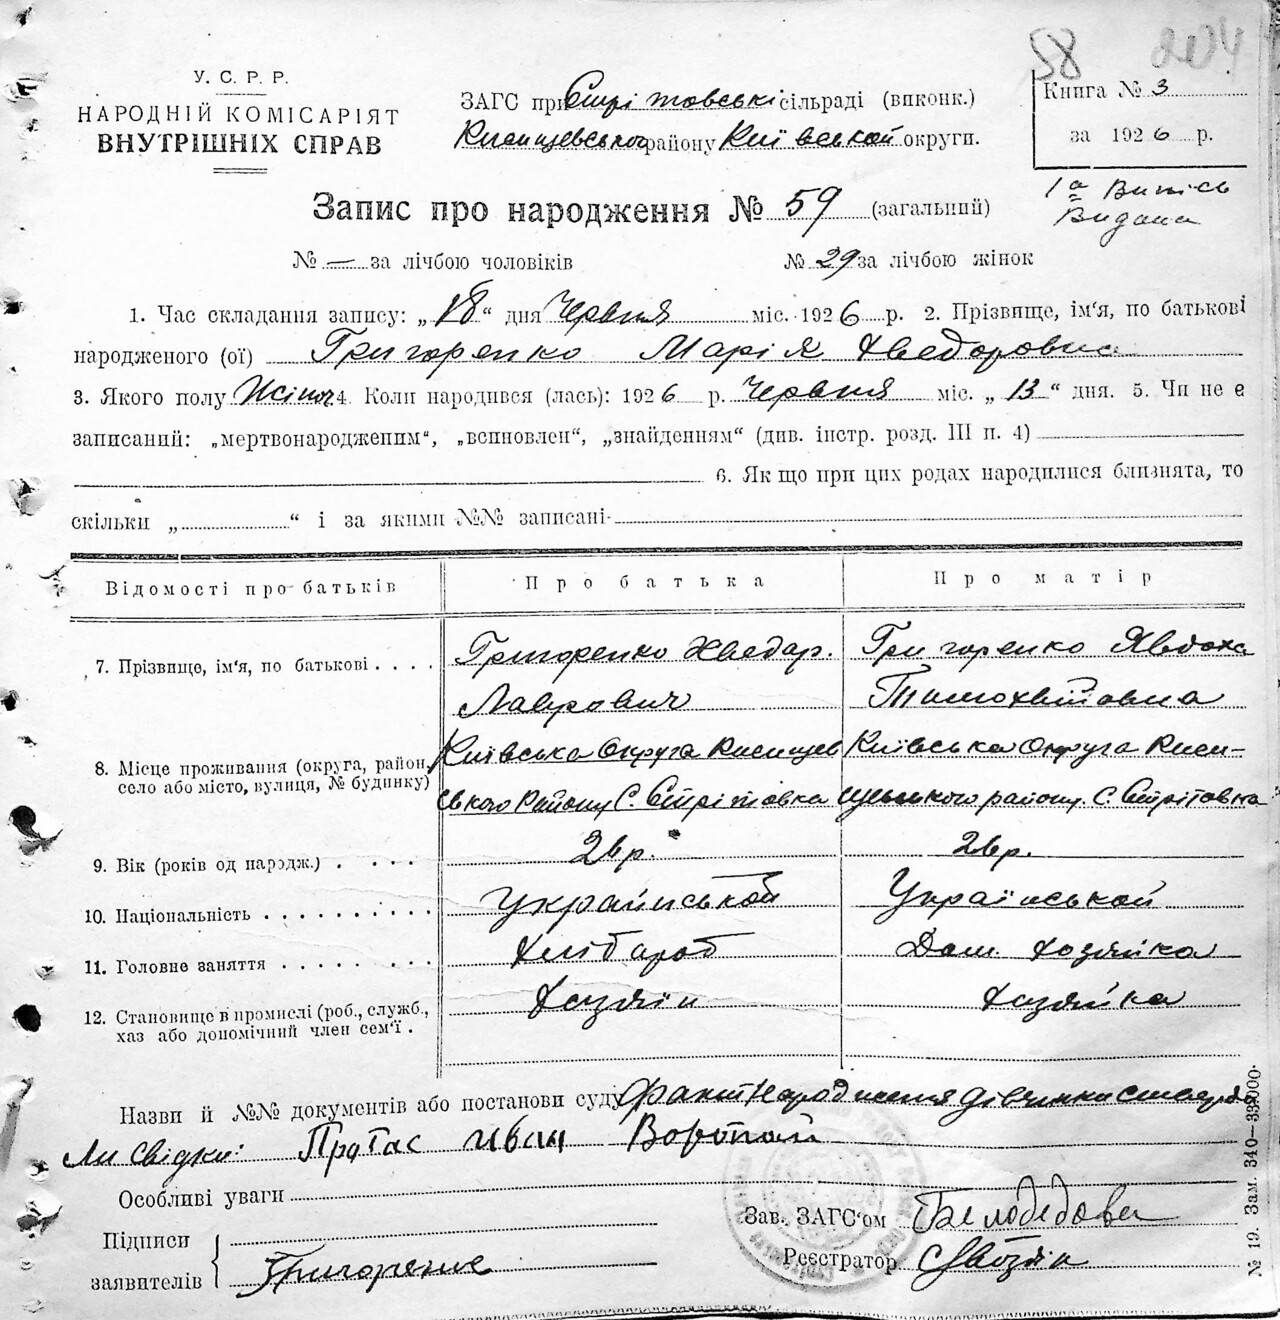 58 204
У. С. Р. Р.
НАРОДНІЙ КОМІСАРІЯТ
ВНУТРІШНІХ СПРАВ
ЗАГС при Стрітовські сільраді (виконк.)
району Київської округи.
Книга № 3
за 1926 р.
1а Випісь
Видана
Запис про народження № 59 (загальний)
№ — за лічбою чоловіків № 29 за лічбою жінок
1. Час складання запису: „18“ дня Червня міс. 1926 р. 2. Прізвище, ім'я, по батькові
народженого (ої) Григоренко Марія Хведоровна
3. Якого полу Жіноч. 4. Коли народився (лась): 1926 р. Червня міс. „13“ дня. 5. Чи не є
записаний: „мертвонародженим“, „вспновлен“, „знайденням“ (див. інстр. розд. III п. 4)
6. Як що при цих родах народилися близнята, то
скільки „ “ і за якими №№ записані
Відомості про батьків Про батька Про матір
7. Прізвище, ім'я, по батькові . . . . Григоренко Хведар. Григоренко Явдоха
Лаврович Тимохвійовна
8. Місце проживання (округа, район, Київська Округа Київська Округа
село або місто, вулиця, № будинку) Району С. Стрітовка району. С. Стрітовка
9. Вік (років од народж.) . . . . 26 р. 26 р.
10. Національність . . . . . . . . . . Українськой Українськой
11. Головне заняття . . . . . . . . Хлібароб Дом. хозяйка
12. Становище в промислі (роб., служб., Хазяін Хазяйка
хаз або допомічний член сем'ї .
Назви й №№ документів або постанови суду Факт Народження дівчинки ствердж
ли свідки: Протас Иван Воропай
Особливі уваги
Підписи
заявителів Григоренко
Зав. ЗАГС'ом Белодедова
Реєстратор
№ 19. Зам. 340—33.000.